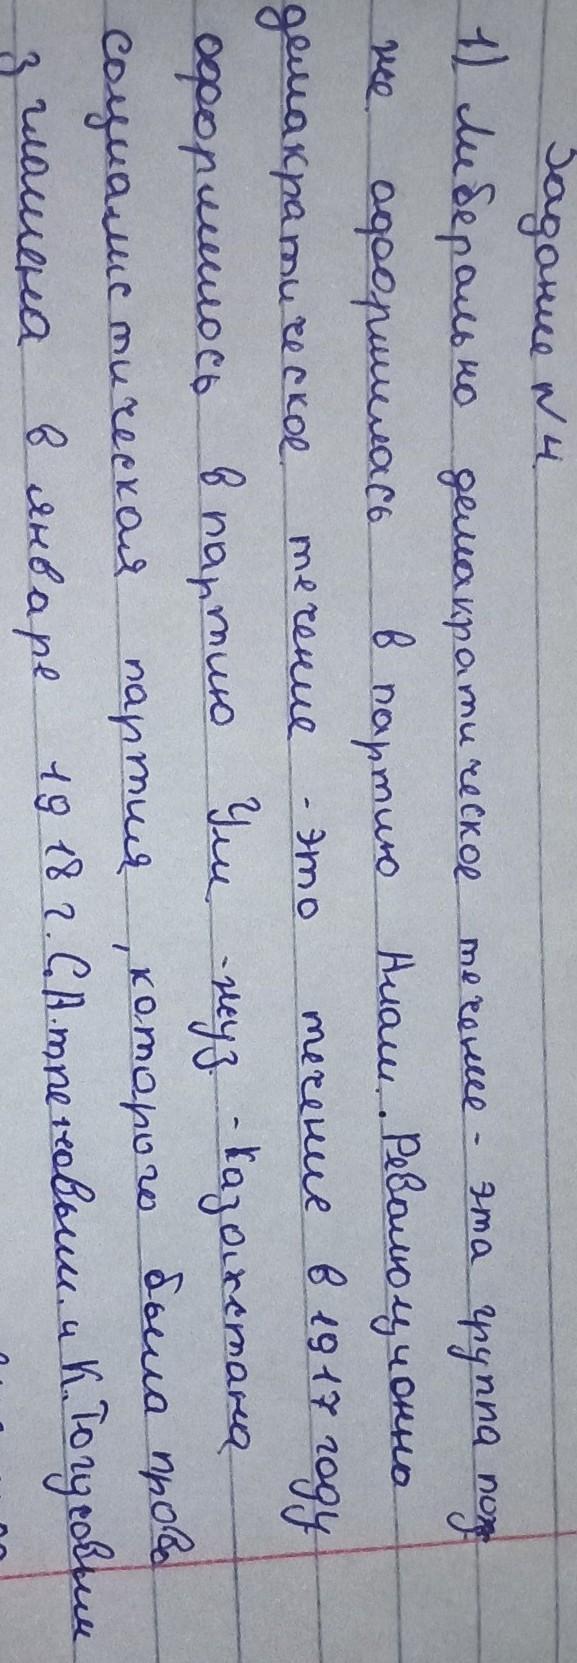 Задание N 4
1) Либерально демакратическое течение - эта группа поз
же оформилась в партию Алаш. Революционно
демакратическое течение - это течение в 1917 году
оформилось в партию Уш - жуз - Казахстана
социалистическая партия, которого была прово
зглашена в январе 1918 г. К. Тогусовым